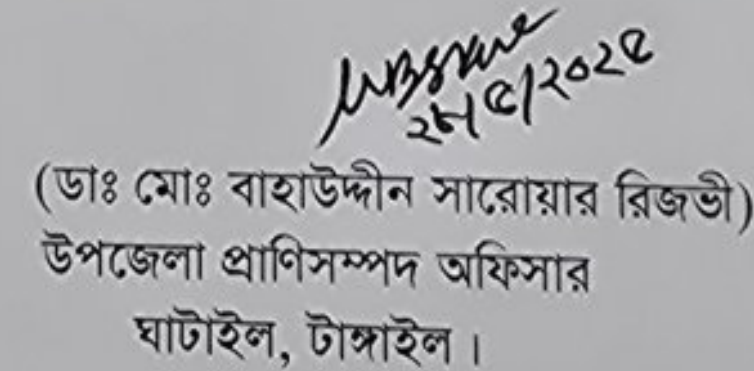 ২৮/৫/২০২৫
(ডাঃ মোঃ বাহাউদ্দীন সারোয়ার রিজভী)
উপজেলা প্রাণিসম্পদ অফিসার
ঘাটাইল, টাঙ্গাইল।